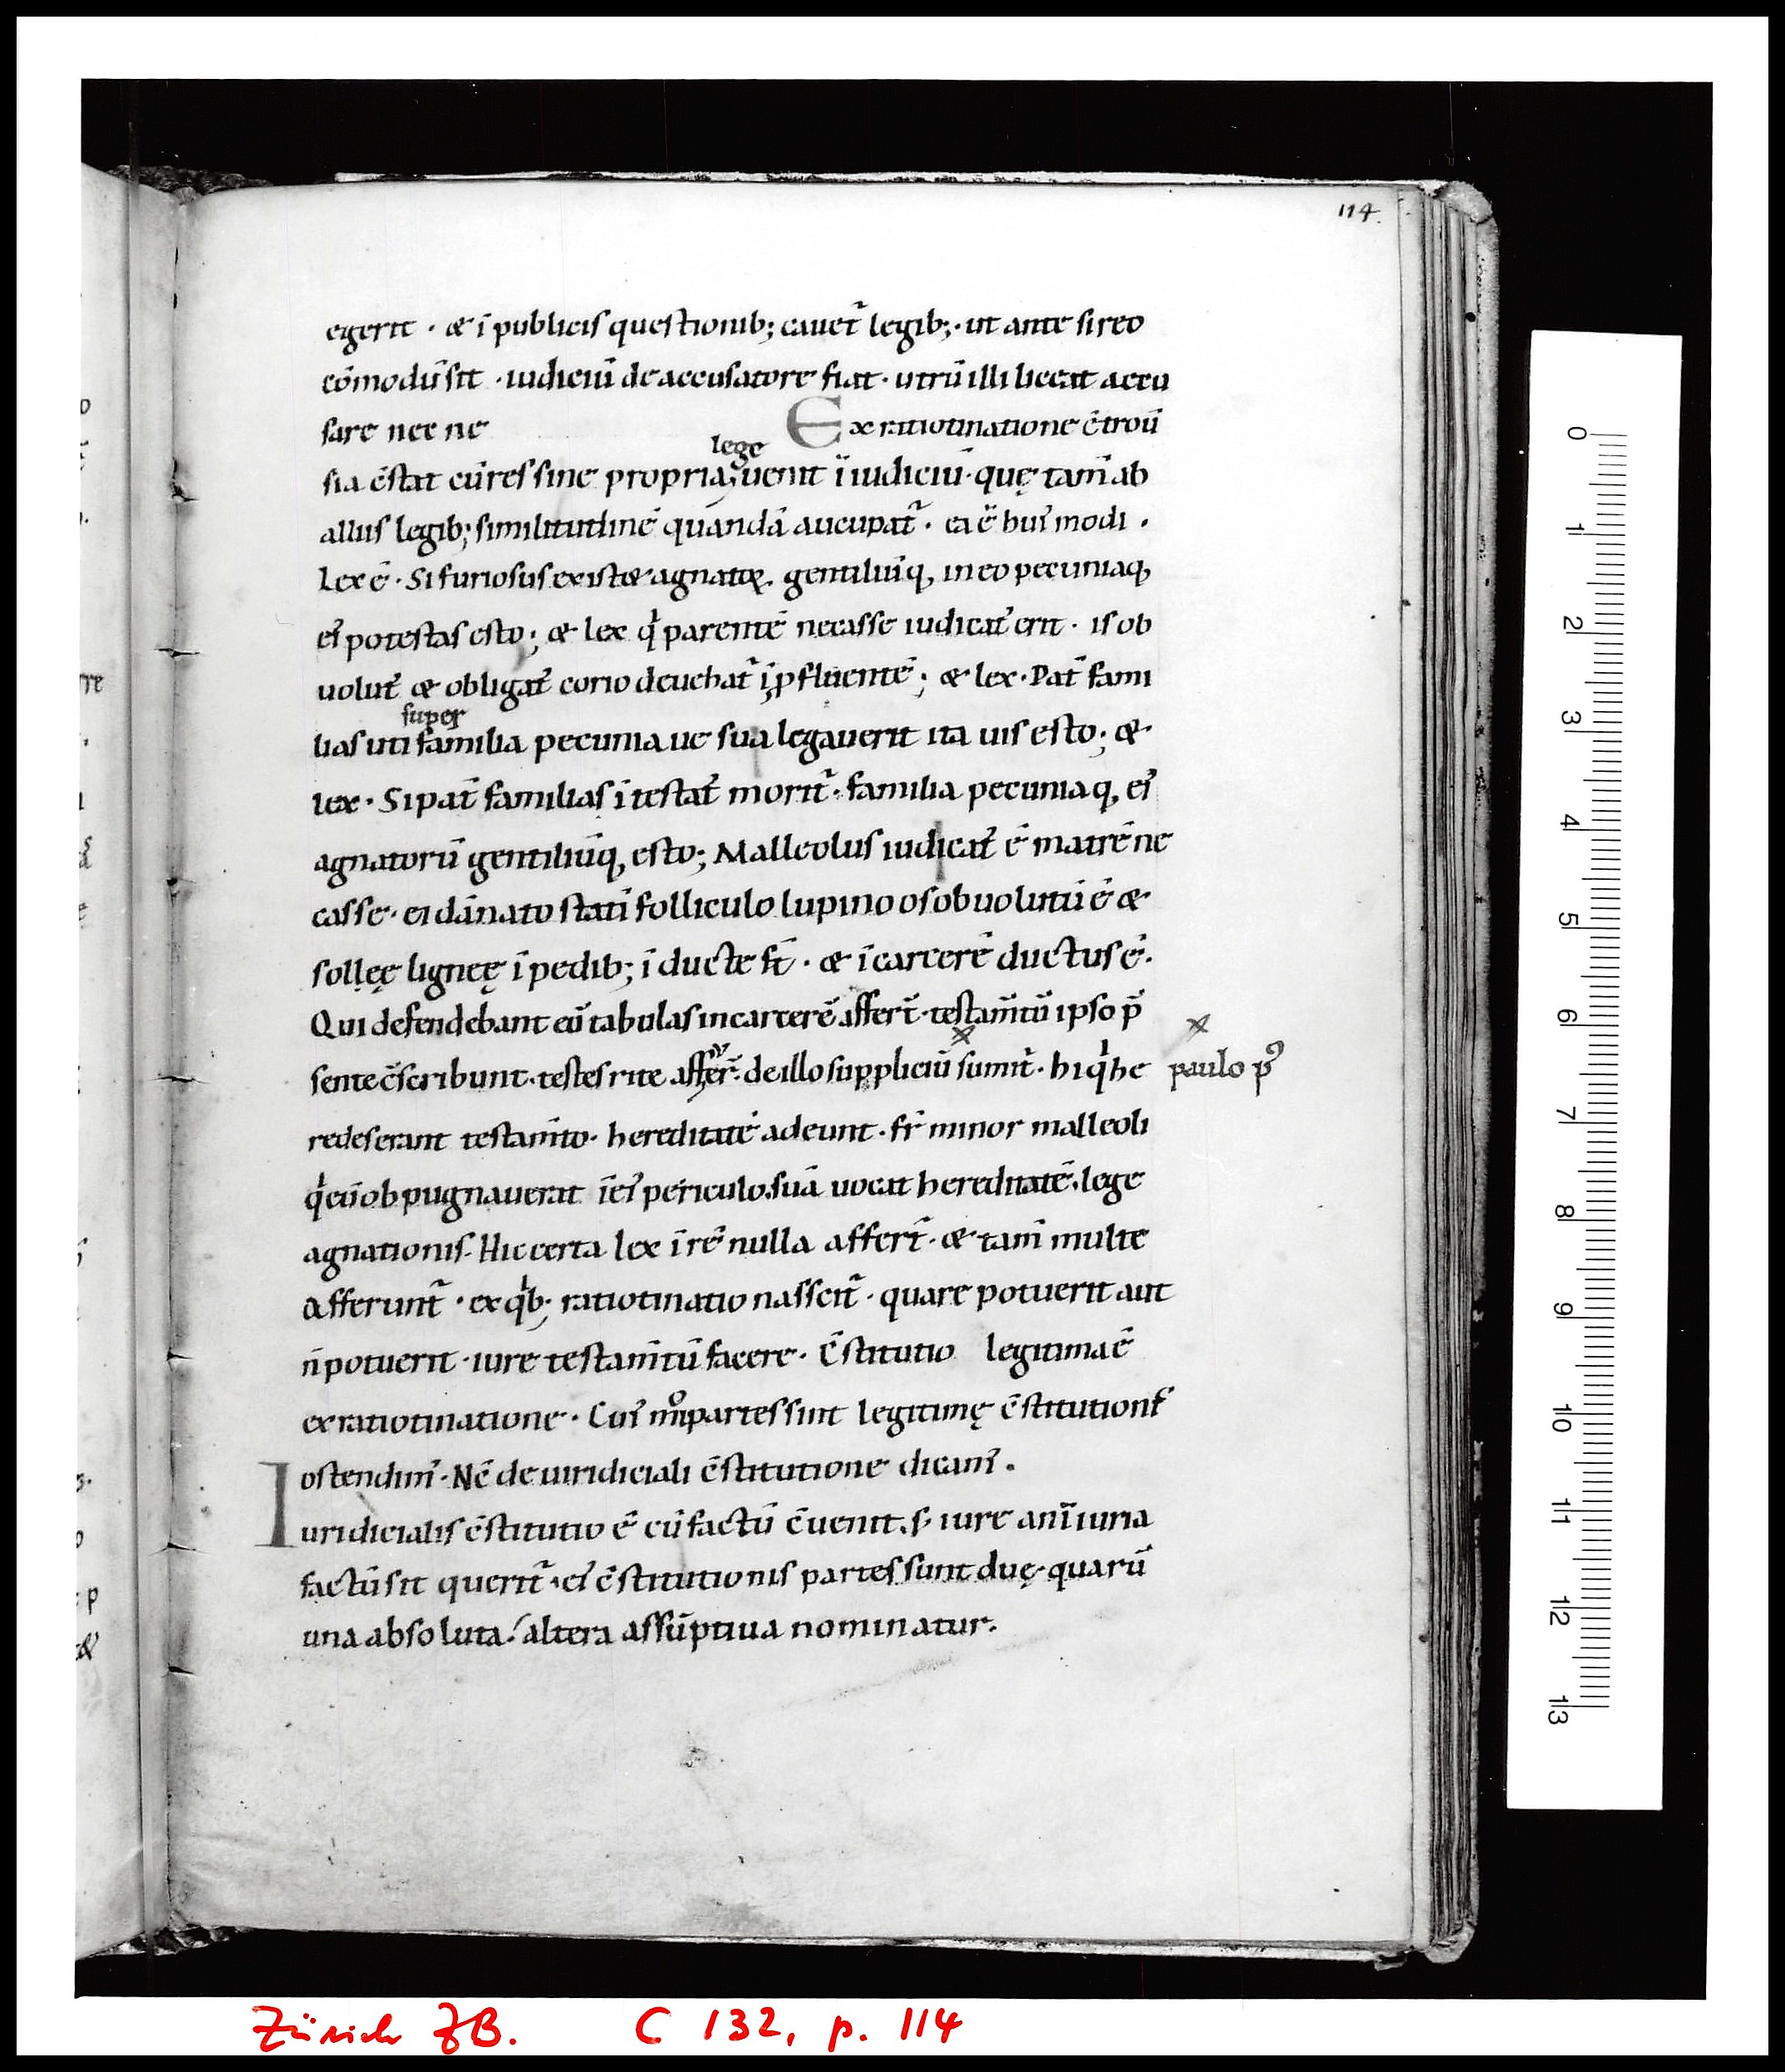 114.
egerit · & ī publicis questionib; cauet᷑ legib;· ut ante si reo
cōmodū sit · iudiciū de accusatore fiat · utrū illi liceat accu
sare nec ne Ex ratiotinatione c̄trou̅
lege
sia c̄stat cū res sine propria uenit ī iudiciū · quę tam̄ ab
aliis legib; similitudinē quandā aucupat᷑ · ea ē hui᾽modi ·
Lex ē · Si furiosus existat agnatoꝝ · gentiliūq, in eo pecuniaq,
ei᾽ potestas esto; & lex qͥ parentē necasse iudicat᾽ erit · is ob
uolut᾽ & obligat᾽ corio deuehat᷑ ī ꝓfluentē; & lex · Pat̄ fami
super
lias uti familia pecunia ue sua legauerit ita uis esto; &
lex · Si pat̄ familias ītestat᾽ morit᷑ · familia pecuniaq, ei᾽
agnatorū gentiliūq, esto; Malleolus iudicat᾽ ē matrē ne
casse · ei dānato statī folliculo lupino os obuolutū ē &
solleę ligneę ī pedib; īducte sт̄ · & ī carcerē ductus ē.
Qui defendebant eū tabulas in carcerē affert̄ · testam̄tū ipso p̄
sente c̄scribunt · testes rite affer̄ · de illo suppliciū sumit᷑ · hi qͥ he paulo p᾽
redes erant testam̄to · hereditatē adeunt · fr̄ minor malleoli
qͥ eū obpugnauerat ī ei᾽ periculo. suā uocat hereditatē. lege
agnationis. Hic certa lex ī rē nulla affert᷑ · & tam̄ multe
afferunt᷑ · ex qͥb; ratiotinatio nasscit᷑ · quare potuerit aut
n̄ potuerit · iure testam̄tū facere · C̄stitutio legitima ē
ex ratiotinatione · Cui᾽ mͦi partes sint legitimę c̄stitutionis
ostendim᾽ · Nc̄ de iuridiciali c̄stitutione dicam᾽ .
Iuridicialis c̄stitutio ē cū factū c̄uenit. s; iure an īniuria
factū sit querit᷑ · ei᾽ c̄stitutionis partes sunt duę · quarū
una absoluta. altera assūptiua nominatur.
0 1 2 3 4 5 6 7 8 9 10 11 12 13
Zürich ZB. C 132, p. 114